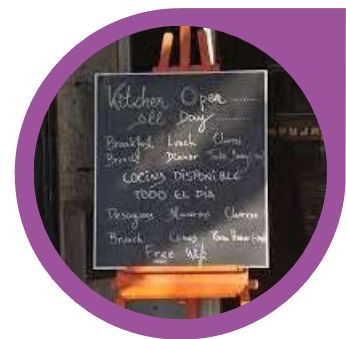 Kitchen Open
all Day
Breakfast Lunch Churros
Brunch Dinner
COCINA DISPONIBLE
TODO EL DIA
Desayunos Churros
Brunch Cenas
Free Wifi